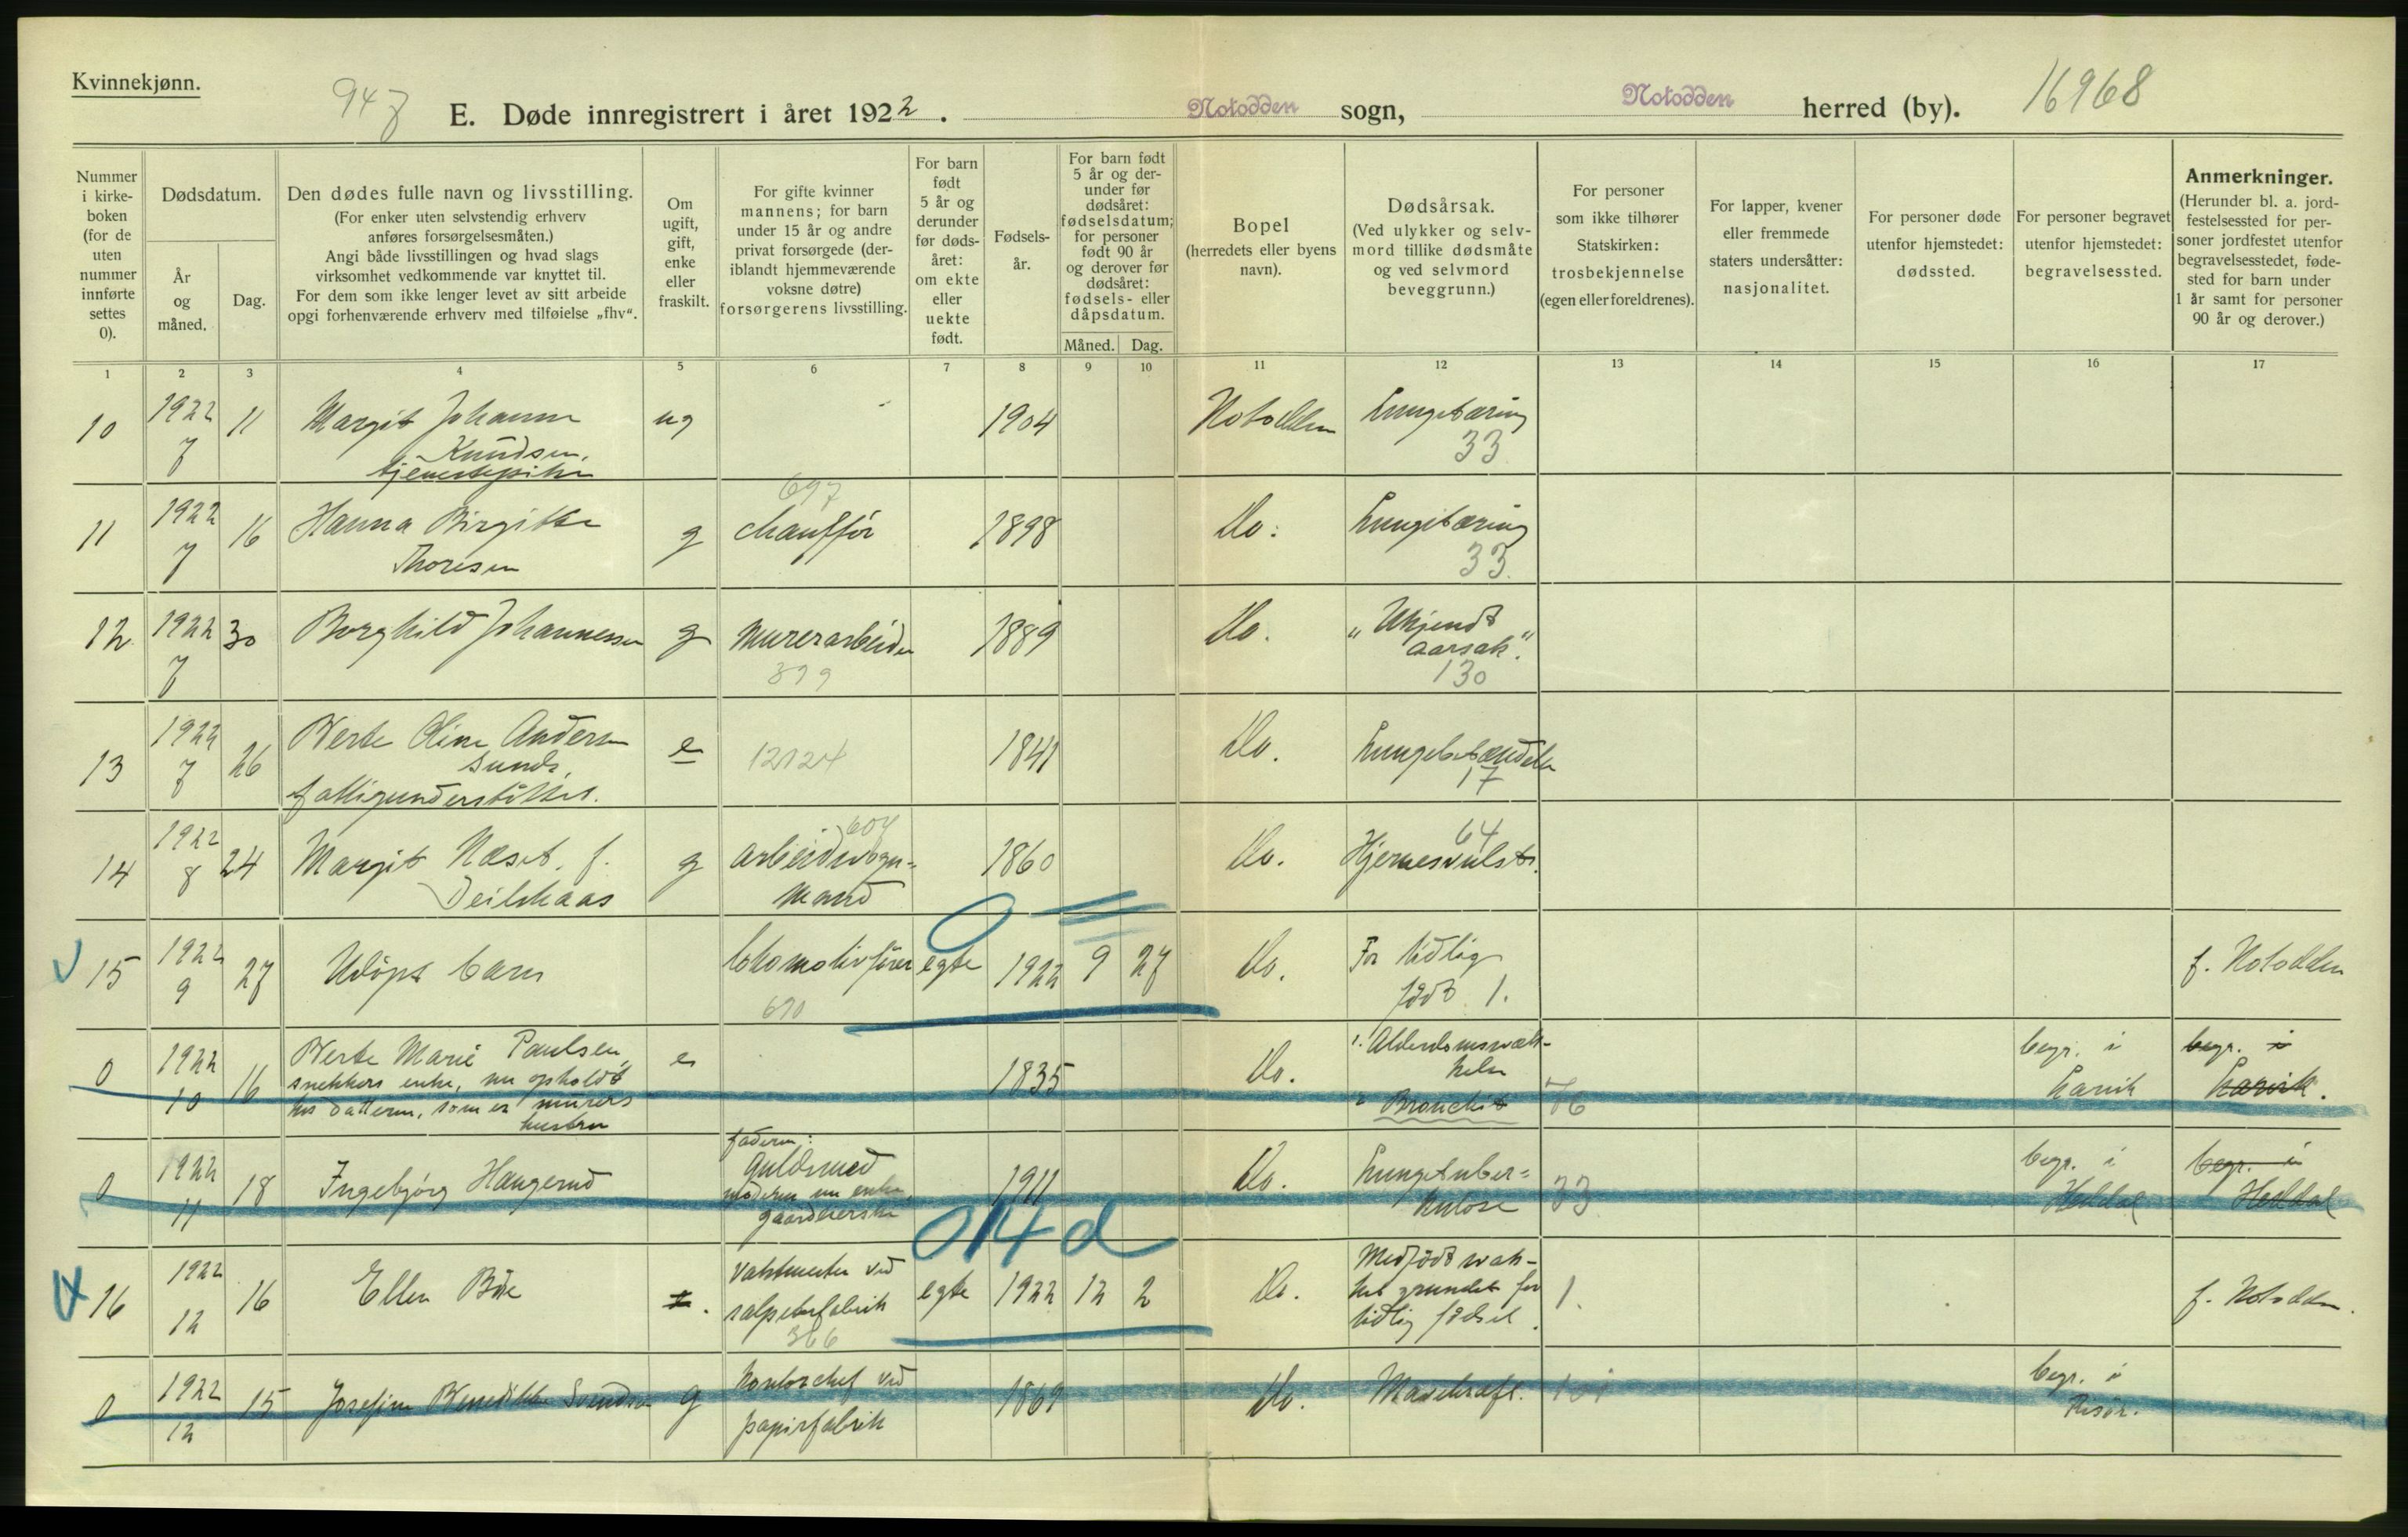 Kvinnekjønn.
947
E. Døde innregistrert i året 1922. Notodden sogn, Notodden herred (by). 16968
Nummer i kirke-boken (for de uten nummer innførte settes 0).
Dødsdatum.
År og måned.
Dag.
Den dødes fulle navn og livsstilling.
(For enker uten selvstendig erhverv anføres forsørgelsesmåten.)
Angi både livsstillingen og hvad slags virksomhet vedkommende var knyttet til.
For dem som ikke lenger levet av sitt arbeide opgi forhenværende erhverv med tilføielse „fhv“.
Om ugift, gift, enke eller fraskilt.
For gifte kvinner mannens; for barn under 15 år og andre privat forsørgede (der-iblandt hjemmeværende voksne døtre) forsørgerens livsstilling.
For barn født 5 år og derunder før døds-året: om ekte eller uekte født.
Fødsels-år.
For barn født 5 år og der-under før dødsåret: fødselsdatum; for personer født 90 år og derover før dødsåret: fødsels- eller dåpsdatum.
Måned. Dag.
Bopel (herredets eller byens navn).
Dødsårsak.
(Ved ulykker og selv-mord tillike dødsmåte og ved selvmord beveggrunn.)
For personer som ikke tilhører Statskirken: trosbekjennelse (egen eller foreldrenes).
For lapper, kvener eller fremmede staters undersåtter: nasjonalitet.
For personer døde utenfor hjemstedet: dødssted.
For personer begravet utenfor hjemstedet: begravelsessted.
Anmerkninger.
(Herunder bl. a. jord-festelsessted for per-soner jordfestet utenfor begravelsesstedet, føde-sted for barn under 1 år samt for personer 90 år og derover.)
1 2 3 4 5 6 7 8 9 10 11 12 13 14 15 16 17
10 1922 7 11 Margit Johanne Knudsen, tjenestepike ug 1904 Notodden Lungetæring 33
11 1922 7 16 Hanna Birgitte Thoresen g 697 chauffør 1898 Do. Lungetæring 33
12 1922 7 30 Borghild Johannessen g Murerarbeider 1889 Do. „Ukjendt aarsak“. 130
13 1922 7 26 Berte Oline Andersen Sunde, fattigunderstøttet. e 12124 1841 Do. Lungebetændelse 17
14 1922 8 24 Margit Næset, f. Deilkaas g 604 arbeidsvogn-mand 1860 Do. 64 Hjernesvulst.
15 1922 9 27 Udøpt barn lokomotivfører 610 egte 1922 9 27 Do. For tidlig født 1. f. Notodden
0 1922 10 16 Berte Marie Paulsen, snekkers enke, nu opholdt hos datteren, som er murers hustru e 1835 Do. 1. Alderdomssvak-kelse 2 Bronchit 76 begr. i Larvik begr. i Larvik.
0 1922 11 18 Ingebjørg Haugerud faderen: Guldsmed moderen nu enke, gaardeierske 1911 Do. Lungetuber-kulose 33 begr. i Heddal begr. i Heddal
014d
16 1922 12 16 Ellen Bøe Vaktmester ved salpeterfabrik 366 egte 1922 12 2 Do. Medfødt svak-het grundet for tidlig fødsel. 1. f. Notodden.
0 1922 12 15 Josefine Benedikte Svendsen g Kontorchef ved papirfabrik 1869 Do. Mavekræft. begr. i Risør.